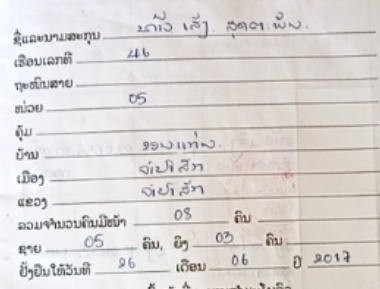 ຊື່ແລະນາມສະກຸນ ທ້າວ ເສັງ ສຸດຕະພົນ
ເຮືອນເລກທີ 46
ຖະໜົນສາຍ
ໜ່ວຍ 05
ຄຸ້ມ
ບ້ານ
ເມືອງ ຈຳປາສັກ
ແຂວງ ຈຳປາສັກ
ລວມຈຳນວນຄົນມີໜ້າ 08 ຄົນ
ຊາຍ 05 ຄົນ, ຍິງ 03 ຄົນ
ຢັ້ງຢືນໃຫ້ວັນທີ 26 ເດືອນ 06 ປີ 2017